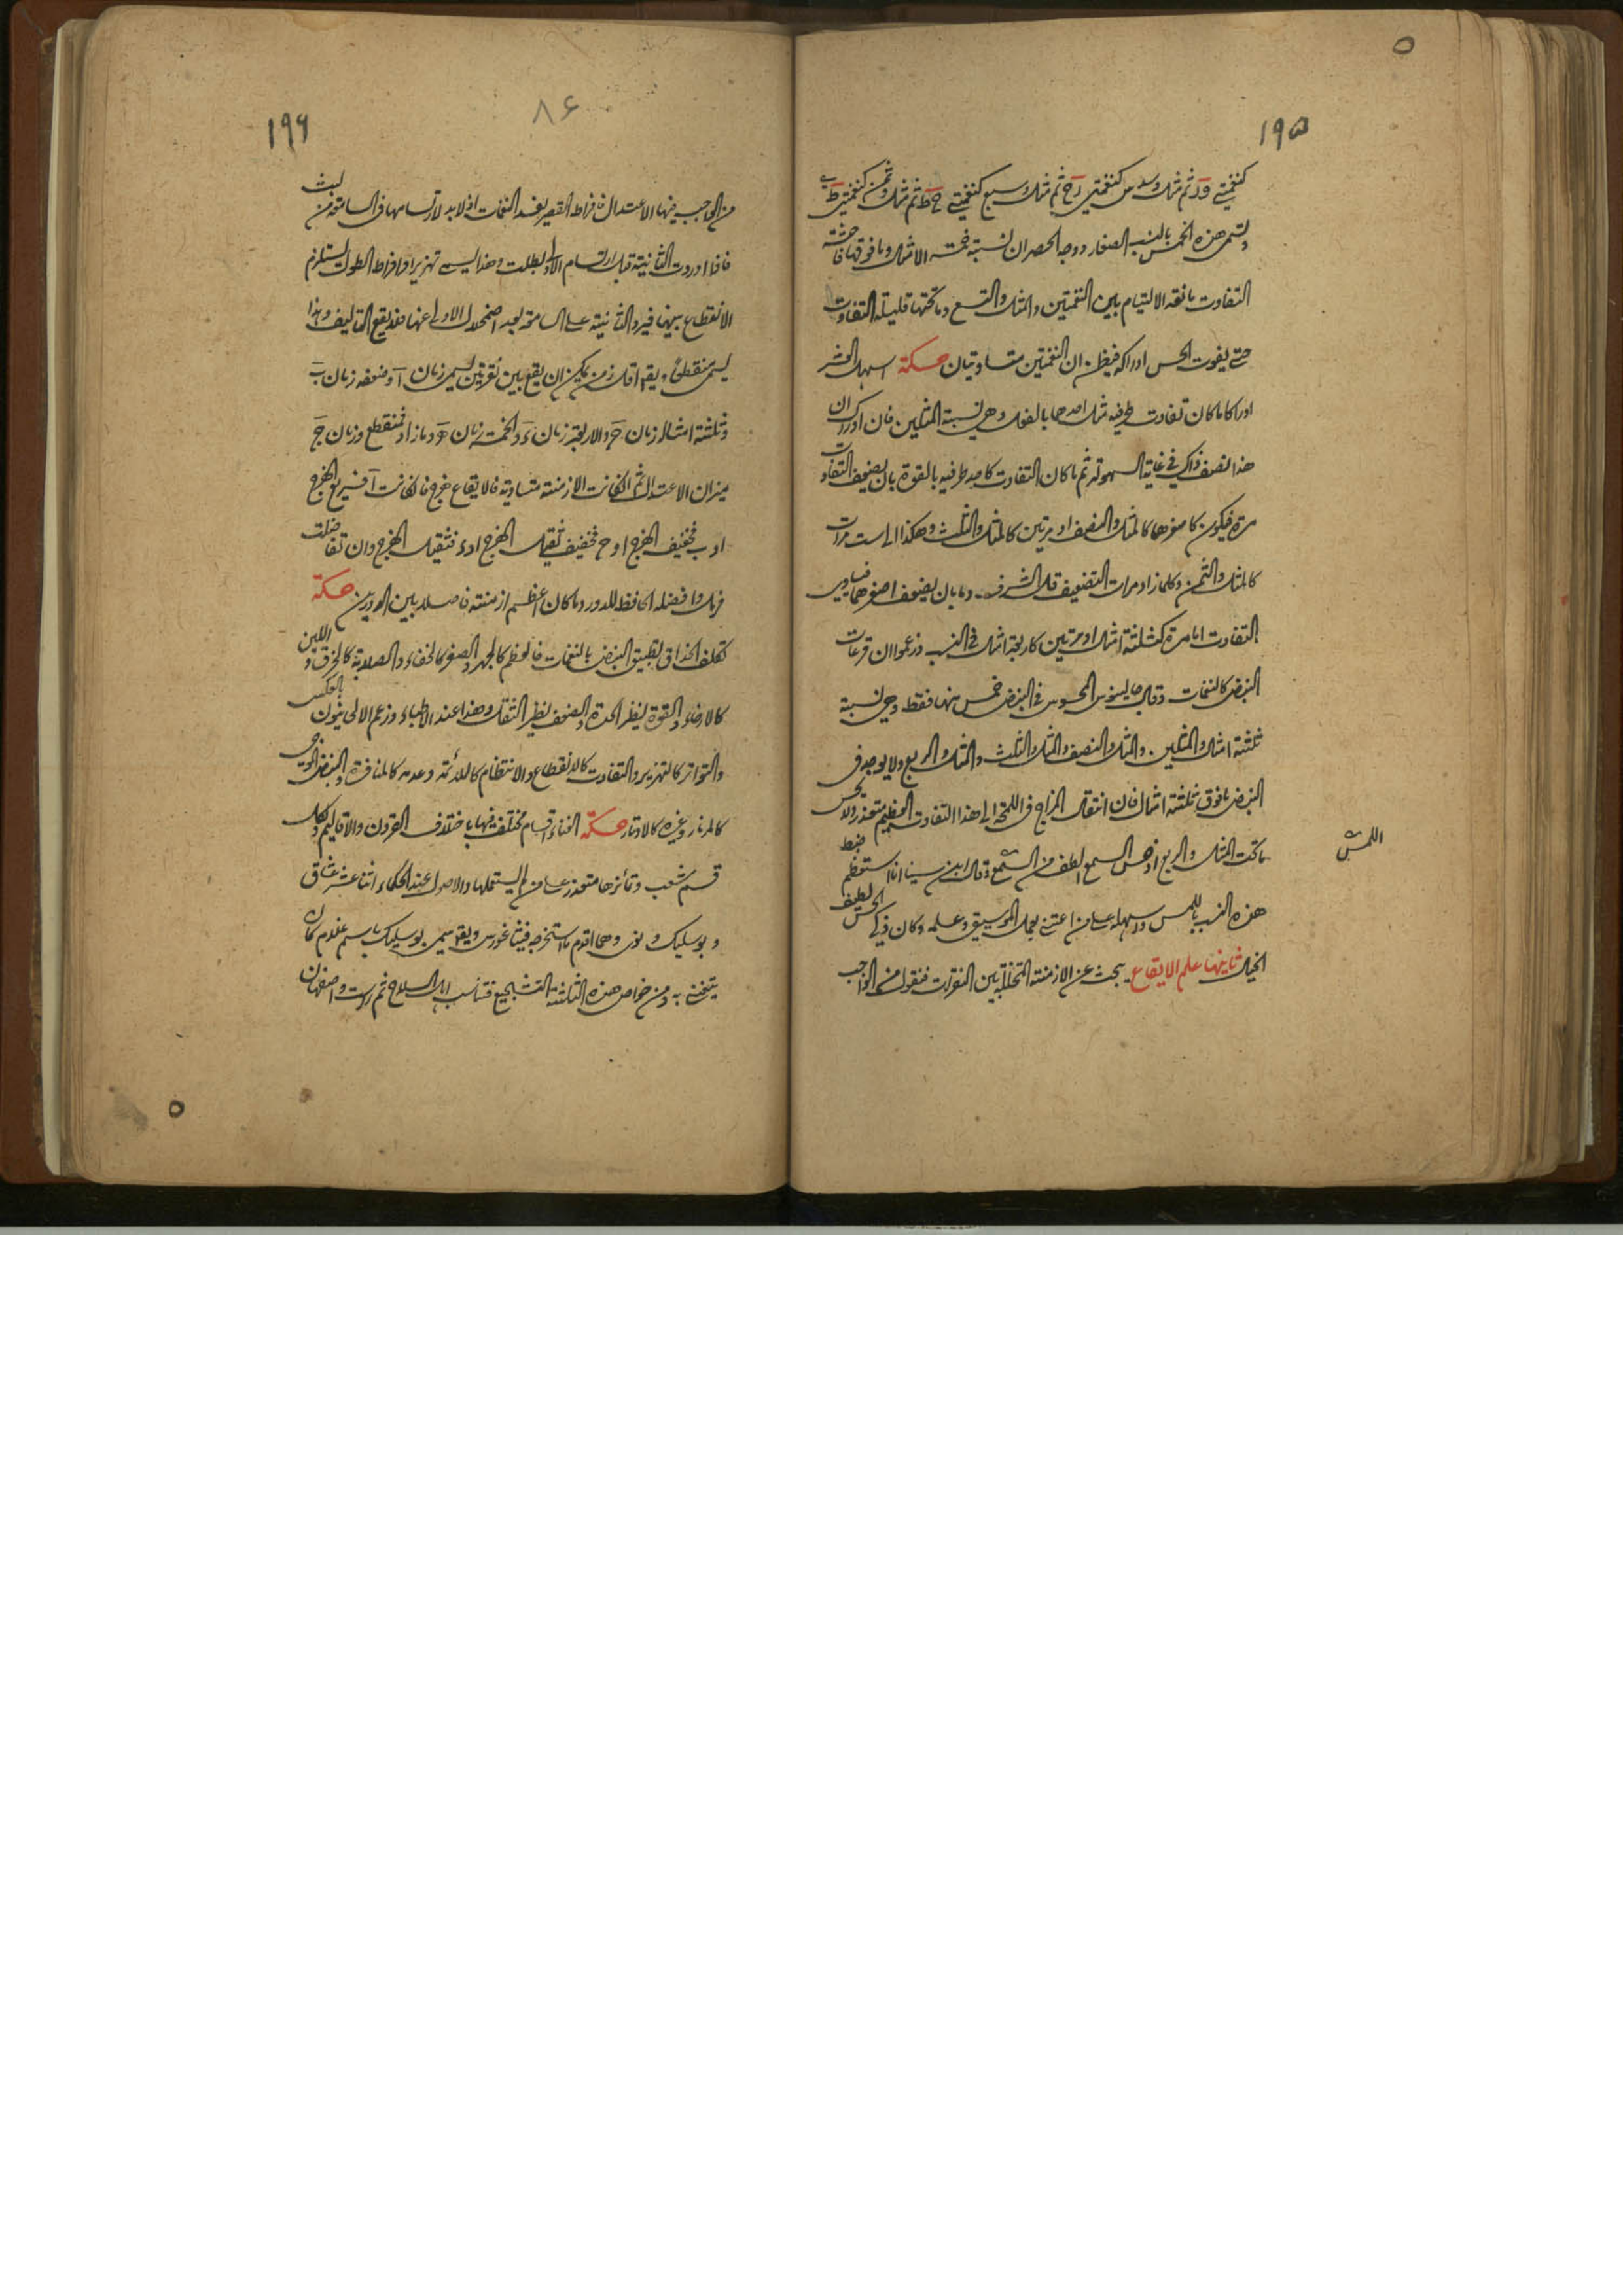 ١٩٥
كنغمتي و د ثم مثل وسدس كنغمتي ح ثم مثل وسبع كنغمتي ح ط ثم مثل وثمن كنغمتي ط ى
وتسمى هذه الخمس بالنسب الصغار ووجه الحصر ان نسبة خمسة الامثال وما فوقها فاحشة
التفاوت مانعه الالتيام بين النغمتين والمثل والتسع وما تحتها قليلة التفاوت
حتى يفوت الحس ادراكه فيظن ان النغمتين متساويتان حكمة اسهل العشر
ادراكا ما كان تفاوت طرفيه مثل احدهما بالفعل وهي نسبة المثلين فان ادراك ان
هذا نصف ذاك في غاية السهولة ثم ما كان التفاوت كاحد طرفيه بالقوة بان يضعف التفاوت
مرة فيكون كاصغرهما كالمثل والنصف او مرتين كالمثل والثلث وهكذا الى ست مرات
كالمثل والثمن وكلما زاد مرات التضعيف قل الشرف واما بان يضعف اصغرهما فيساوى
التفاوت اما مرة كثلثة امثال او مرتين كاربعة امثال في النسب وزعموا ان قرعات
النبض كالنغمات وقال جالينوس المحسوس في النبض خمس منها فقط وهي نسبة
ثلثة امثال والمثلين والمثل والنصف والمثل والثلث والمثل والربع ولا يوجد في
النبض ما فوق ثلثة امثال فان انتقال المزاج في اللمحة الى هذا التفاوت العظيم متعذر ولا يحس
ما تحت المثل والربع اذ حس السمع الطف من السمع وقال ابن سينا انا استعظم ضبط
اللمس
هذه النسب باللمس وسهله على من اعتنى بعمل الموسيقى وعلمه وكان ذكي الحس لطيف
الخيال ثانيها علم الايقاع يبحث عن الازمنة المتخللة بين النقرات فنقول من الواجب
١٩٦
٨٦
من الواجب فيها الاعتدال فافراط القصر يفسد النغمات اذ لا بد لارتسامها في السامعة من لبث
فاذا وردت الثانية قبل ارتسام الاولى بطلت وهذا يسمى تهزيرا وافراط الطول يستلزم
الانقطاع بينها فيرد الثانية على السامعة بعد اضمحلال الاولى عنها فلا يقع التاليف وهذا
يسمى منقطعا ويقع اقل زمن يمكن ان يقع بين نقرتين يسمى زمان آ وضعفه زمان ب
وثلثة امثاله زمان ج والاربعة زمان د والخمسة زمان ه وما زاد فمنقطع وزمان ج
ميزان الاعتدال ثم ان كانت الازمنة متساوية فالايقاع هزج فان كانت آ فسريع الهزج
او ب فخفيف الهزج او ج فخفيف ثقيل الهزج او د فثقيل الهزج وان تفاضلت
فرمل وافضله الحافظ للدور وما كان اعظم ازمنته فاصلا بين الدورين حكمة
تكلف الحذاق تطبيق النبض بالنغمات فالعظم كالجهر والصغر كالخفاء والصلابة كالخرق واللين
كالارخاء والقوة نظير الحدة والضعف نظير الثقل وهذا عند الاطباء وزعم الالحانيون بالعكس
والتواتر كالتهزير والتفاوت كالانقطاع والانتظام كالملائمة وعدمه كالمنافرة والنبض الموجي
كالمزمار وغيره كالاوتار حكمة الغناء اقسام مختلفة فيها باختلاف القرون والاقاليم ولكل
قسم شعب وتمايزها متعذر على من لم يستعملها والاصول عند الحكماء اثنا عشر عشاق
وبوسليك ونوى وهما اقدم ما استخرجه فيثاغورس ويقع سمى بوسليك باسم غلام كان
يتغنى به ومن خواص هذه الثلثة التشجيع فتناسب اهل السلاح ثم راست واصفهان